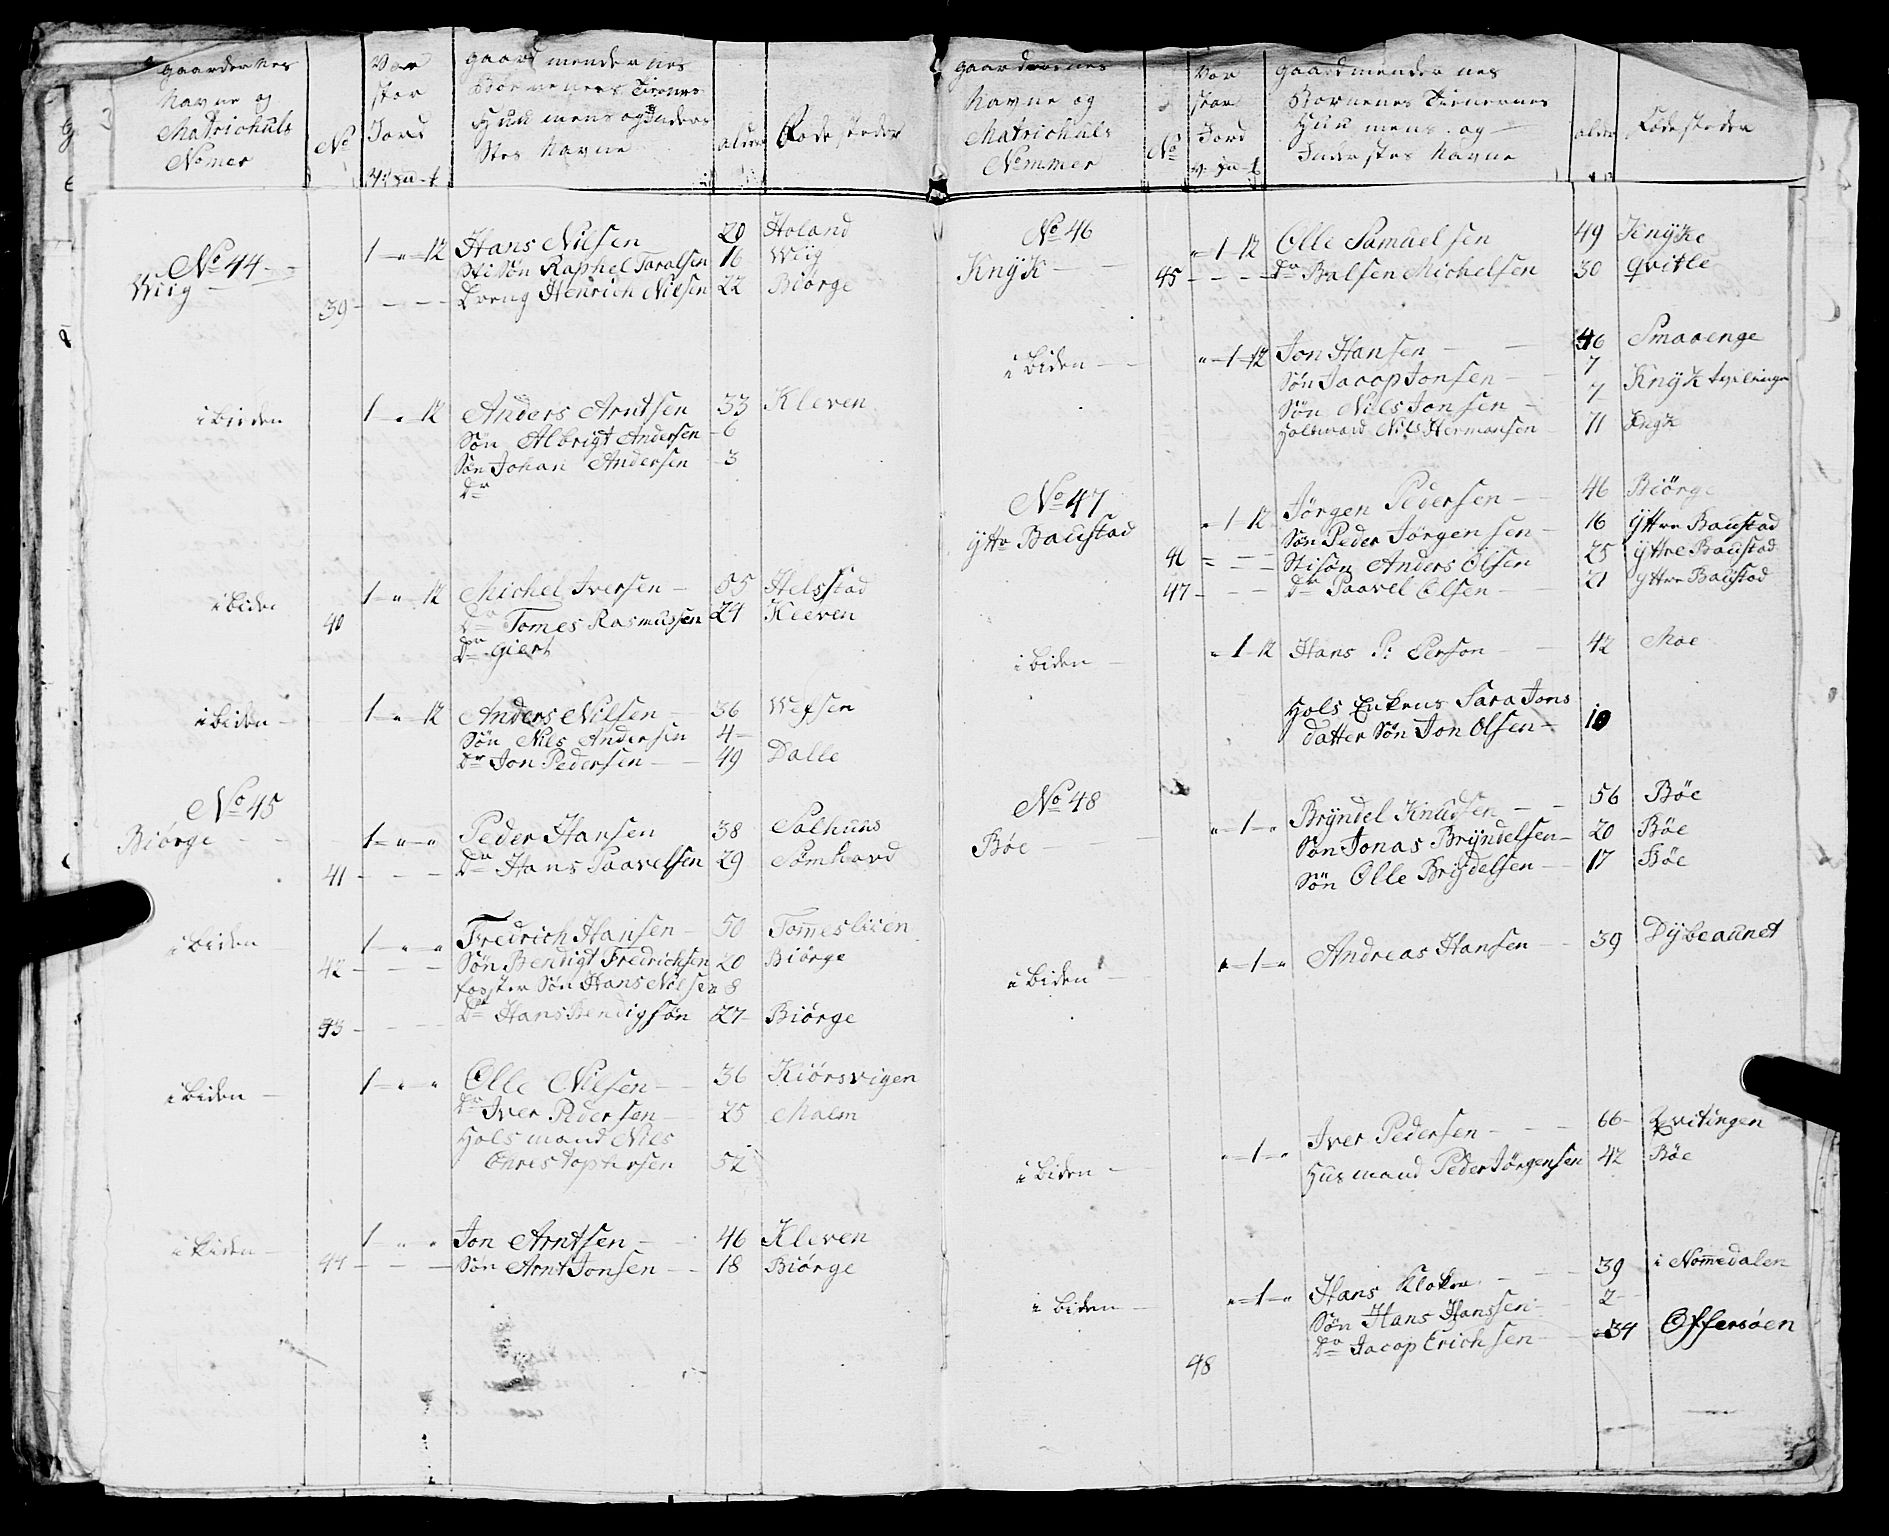 gaardernes
Navne og
Matrichuls
Nomer
No
Vor
stor
Jord
gaardmendernes
Børneners Tienner
Huusmens og Inder
Stes Navne
alder
fødesteder
No 44
Wiig
1 " 12 Hans Nilsen 20 Høland
StiSøn Raphel Taralsen 16 Wiig
39 - - - Dreng Henrich Nilsen 22 Biørge
ibiden 1 " 12 Anders Arntsen 33 Kleven
Søn Albrigt Andersen 6
Søn Johan Andersen 3
Dr
ibiden 1 " 12 Michel Iversen 55 Helsstad
40 Dr Tomes Rasmussen 24 Kleven
Dr Giert
ibiden 1 " 12 Anders Nilsen 36 Wefsen
Søn Nils Andersen 4
Dr Jon Pedersen 49 Dalle
No 45
Biørge 1 " " Peder Hansen 38 Salhuus
41 - - - Dr Hans Paavelsen 29
ibiden 1 " " Fredrich Hansen 50 Tomeslien
42 - - - Søn Bendigt Fredrichsen 20 Biørge
foster Søn Hans Nilsen 8
43 - - - Dr Hans Bendigsøn 27 Biørge
ibiden 1 " " Olle Nilsen 36 Kiørsvigen
Dr Iver Pedersen 25 Malm
Holsmand Niels
Christophersen 52
ibiden 1 " " Jon Arntsen 46 Kleven
44 - - - Søn Arnt Jonsen 18 Biørge
gaardernes
Navne og
Matrichuls
Nommer
No
Vor
stor
Jord
gaardmendernes
Børnenes Tienernes
Huusmens og
Inderstes Navne
alder
fødesteder
No 46
Knÿk " 1 12 Olle Samuelsen 49 Knÿke
45 - - - Dr Balsen Michelsen 30 Qvitle
ibiden " 1 12 Jon Hansen 46 Smaaenge
Søn Jacop Jonsen 7
Søn Nils Jonsen 7 Knÿk tvilinger
Holsmand Nils Hermansen 71 Knÿk
No 47
ÿttre Baustad " 1 12 Jørgen Pedersen 46 Biørge
Søn Peder Jørgensen 16 ÿttre Baustad
46 - - - Stisøn Anders Olsen 25 ÿttre Baustad
47 - - - Dr Paavel Olsen 21 ÿttre Baustad
ibiden " 1 12 Hans P: Person 42 Moe
Hols Enkens Sara Jons
datter Søn Jon Olsen 10
No 48
Bøe " 1 " Brÿndel Knudsen 56 Bøe
Søn Jonas Brÿndelsen 20 Bøe
Søn Olle Brÿdelsen 17 Bøe
ibiden " 1 " Andreas Hansen 39 Dÿbeaunet
ibiden " 1 " Iver Pedersen 66 Qvitingen
Husmand Peder Jørgensen 42 Bøe
ibiden " 1 " Hans Kloker 39 i Nomedalen
Søn Hans Hanssen 2
48 Dr Jacop Erichsen 34 Offersøen